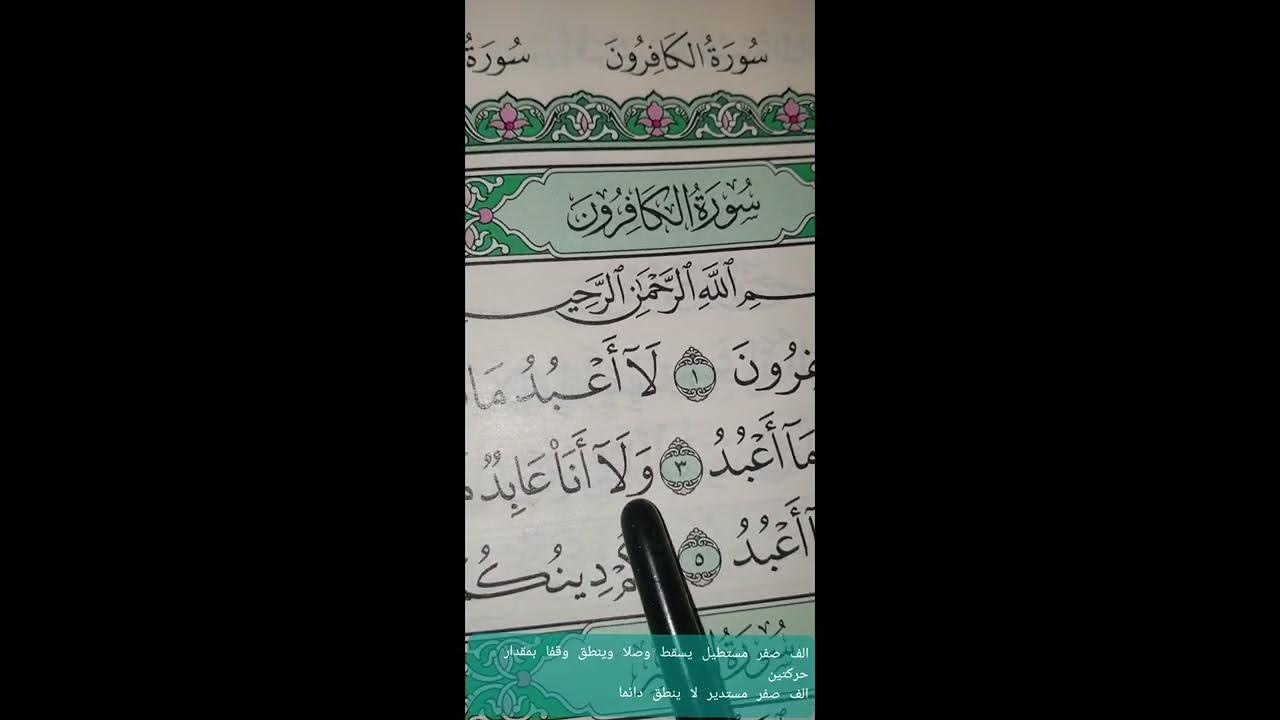 سُورَةُ الكَافِرُونَ سُورَةُ
سُورَةُ الكَافِرُونَ
ٱللَّهِ ٱلرَّحْمَٰنِ
١ لَآ أَعْبُدُ
مَآ أَعْبُدُ ٣ وَلَآ أَنَا۠ عَابِدٌ
أَعْبُدُ ٥
الف صفر مستطيل يسقط وصلا وينطق وقفا بمقدار
حركتين
الف صفر مستدير لا ينطق دائما